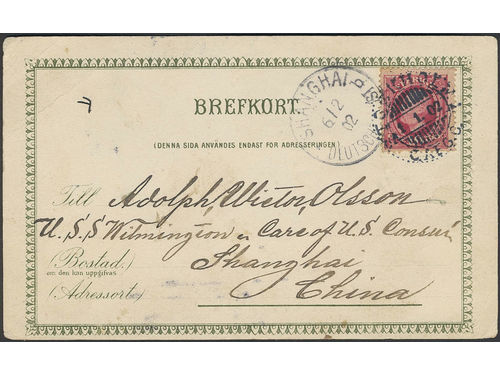 BREFKORT.
SHANGHAI
6/2
02
(DENNA SIDA ANVÄNDES ENDAST FÖR ADRESSERINGEN)
1 02
Till Adolph, Victor, Olsson
U.S.S Wilmington Care of U.S. Consul
(Bostad.)
om den kan uppgifvas
Shanghai
(Adressort)
China